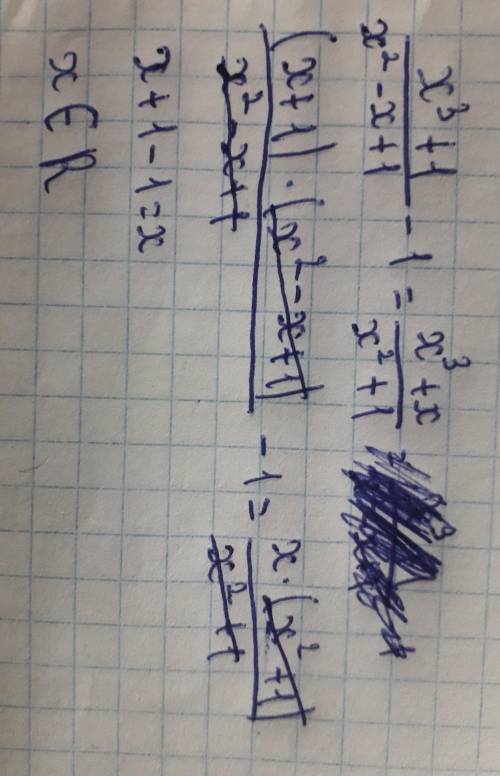 (x³+1)/(x²-x+1) - 1 = (x³+x)/(x²+1)
((x+1)·(x²-x+1))/(x²-x+1) - 1 = (x·(x²+1))/(x²+1)
x+1-1=x
x∈R